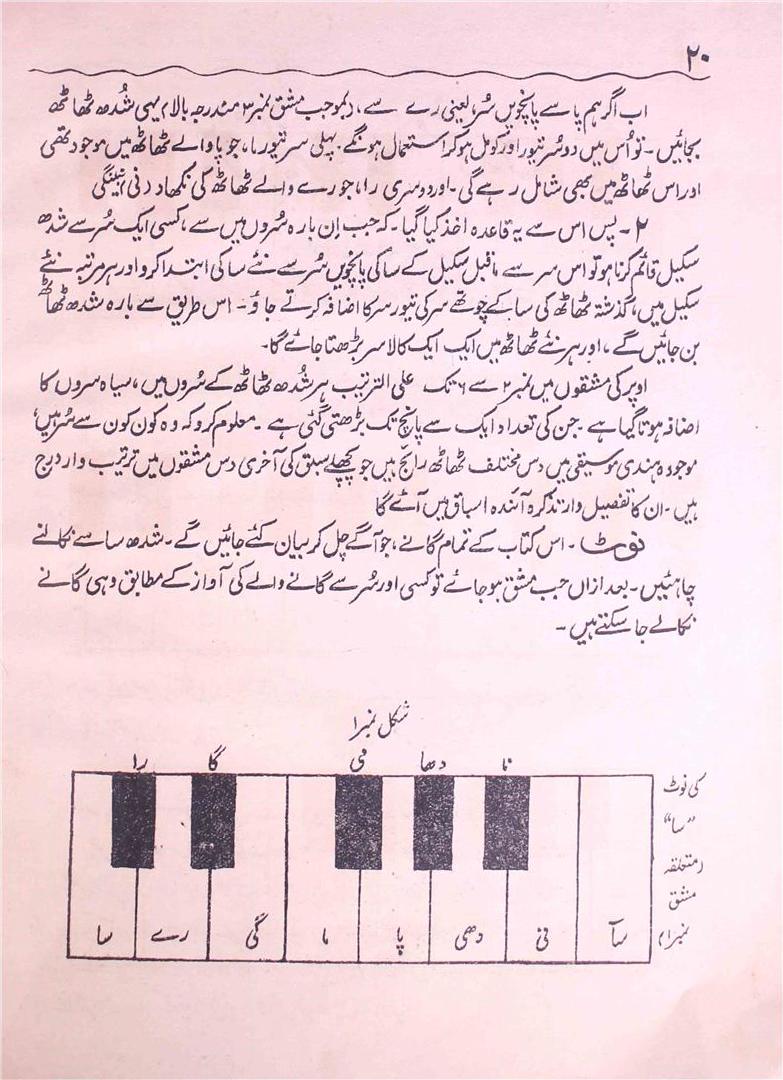 ۲۰
اب اگر ہم پا سے پانچویں سُر، یعنی رے سے، (بموجب مشق نمبر ۳ مندرجہ بالا) یہی شُدھ ٹھاٹھ
بجائیں۔ تو اُس میں دو سُر تیور اور کومل ہو کر استعمال ہونگے۔ پہلی سر تیور ما، جو پا والے ٹھاٹھ میں موجود تھی
اور اس ٹھاٹھ میں بھی شامل رہے گی۔ اور دوسری را، جو رے والے ٹھاٹھ کی نکھاد (نی) بنیگی
۲۔ پس اس سے یہ قاعدہ اخذ کیا گیا۔ کہ جب اِن بارہ سُروں میں سے، کسی ایک سُر سے شدھ
سکیل قائم کرنا ہو تو اس سر سے ماقبل سکیل کے سا کی پانچویں سُر سے نئے سا کی ابتدا کرو اور ہر مرتبہ نئے
سکیل میں، گذشتہ ٹھاٹھ کی سا کے چوتھے سر کی تیور سر کا اضافہ کرتے جاؤ۔ اس طریق سے بارہ شدھ ٹھاٹھ
بن جائیں گے، اور ہر نئے ٹھاٹھ میں ایک ایک کالا سر بڑھتا جائے گا۔
اوپر کی مشقوں میں نمبر ۲ سے ۶ تک علی الترتیب ہر شُدھ ٹھاٹھ کے سُروں میں، سیاہ سروں کا
اضافہ ہوتا گیا ہے۔ جن کی تعداد ایک سے پانچ تک بڑھتی گئی ہے۔ معلوم کرو کہ وہ کون کون سے سُر ہیں،
موجودہ ہندی موسیقی میں دس مختلف ٹھاٹھ رائج ہیں جو پچھلے سبق کی آخری دس مشقوں میں ترتیب وار درج
ہیں۔ ان کا تفصیل وار تذکرہ آئندہ اسباق میں آئے گا
نوٹ۔ اس کتاب کے تمام گانے، جو آگے چل کر بیان کئے جائیں گے۔ شدھ سا سے نکالنے
چاہئیں۔ بعد ازاں جب مشق ہو جائے تو کسی اور سُر سے گانے والے کی آواز کے مطابق وہی گانے
نکالے جا سکتے ہیں۔
شکل نمبر ۱
را گا می دھا نا
کی نوٹ
"سا"
(متعلقہ
مشق
نمبر ۱)
سا رے گی ما پا دھی نی سآ